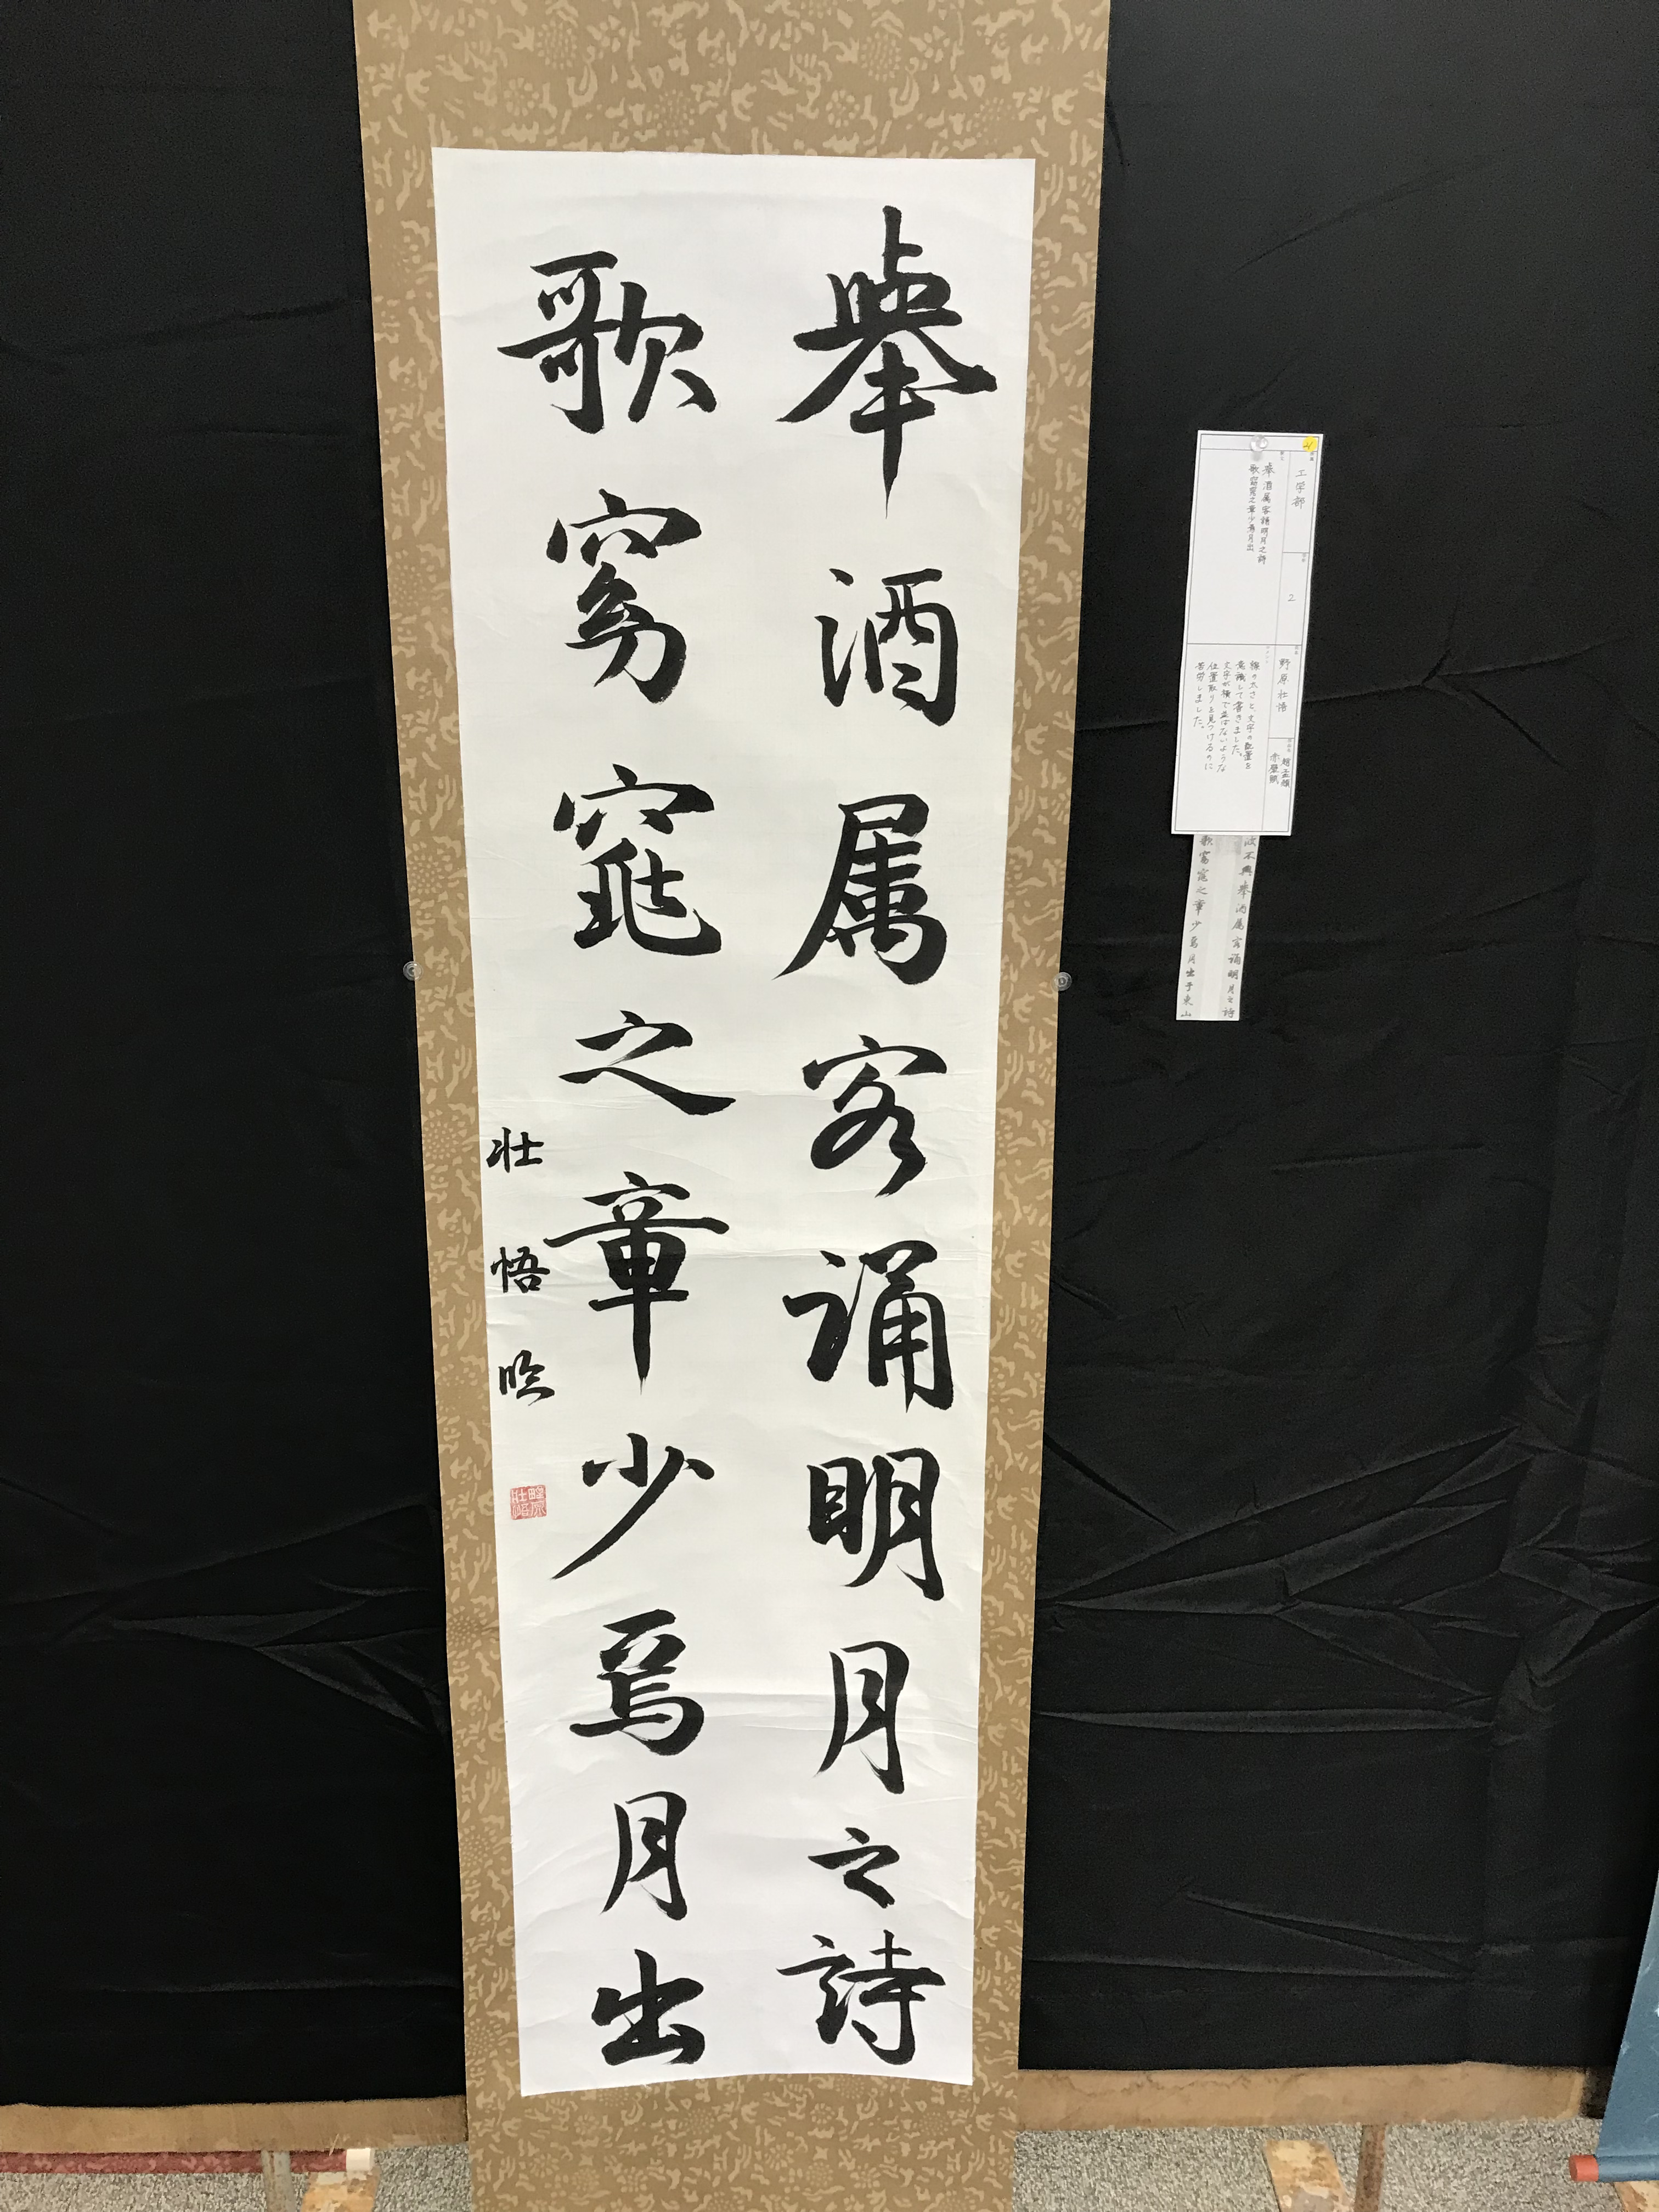 舉酒属客誦明月之詩
歌窈窕之章少焉月出
壮悟臨
野原壮悟
工学部
2
野原壮悟
趙孟頫
赤壁賦
舉酒属客誦明月之詩
歌窈窕之章少焉月出
線の太さと、文字の配置を
意識して書きました。
文字が横で並ばないような
位置取りを見つけるのに
苦労しました。
波不興舉酒属客誦明月之詩
歌窈窕之章少焉月出于東山